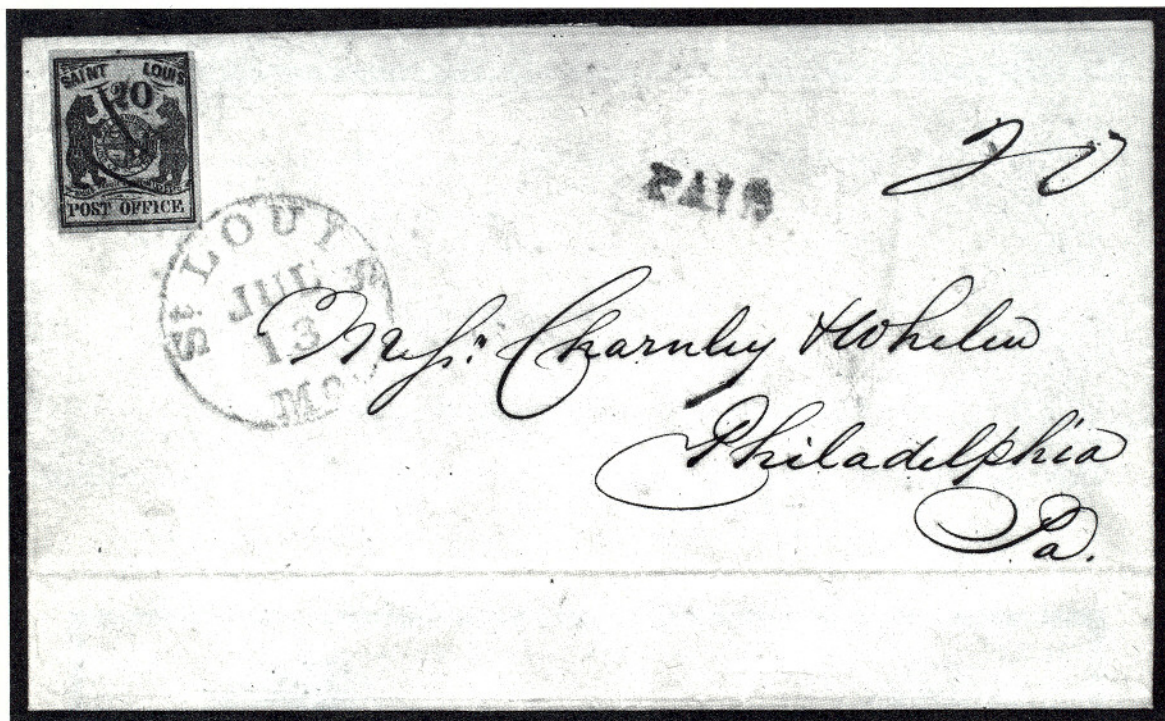 SAINT LOUIS
20
POST OFFICE
PAID
20
St LOUIS
JUL
13
Mo.
Messrs. Charnley & Whelen
Philadelphia
Pa.